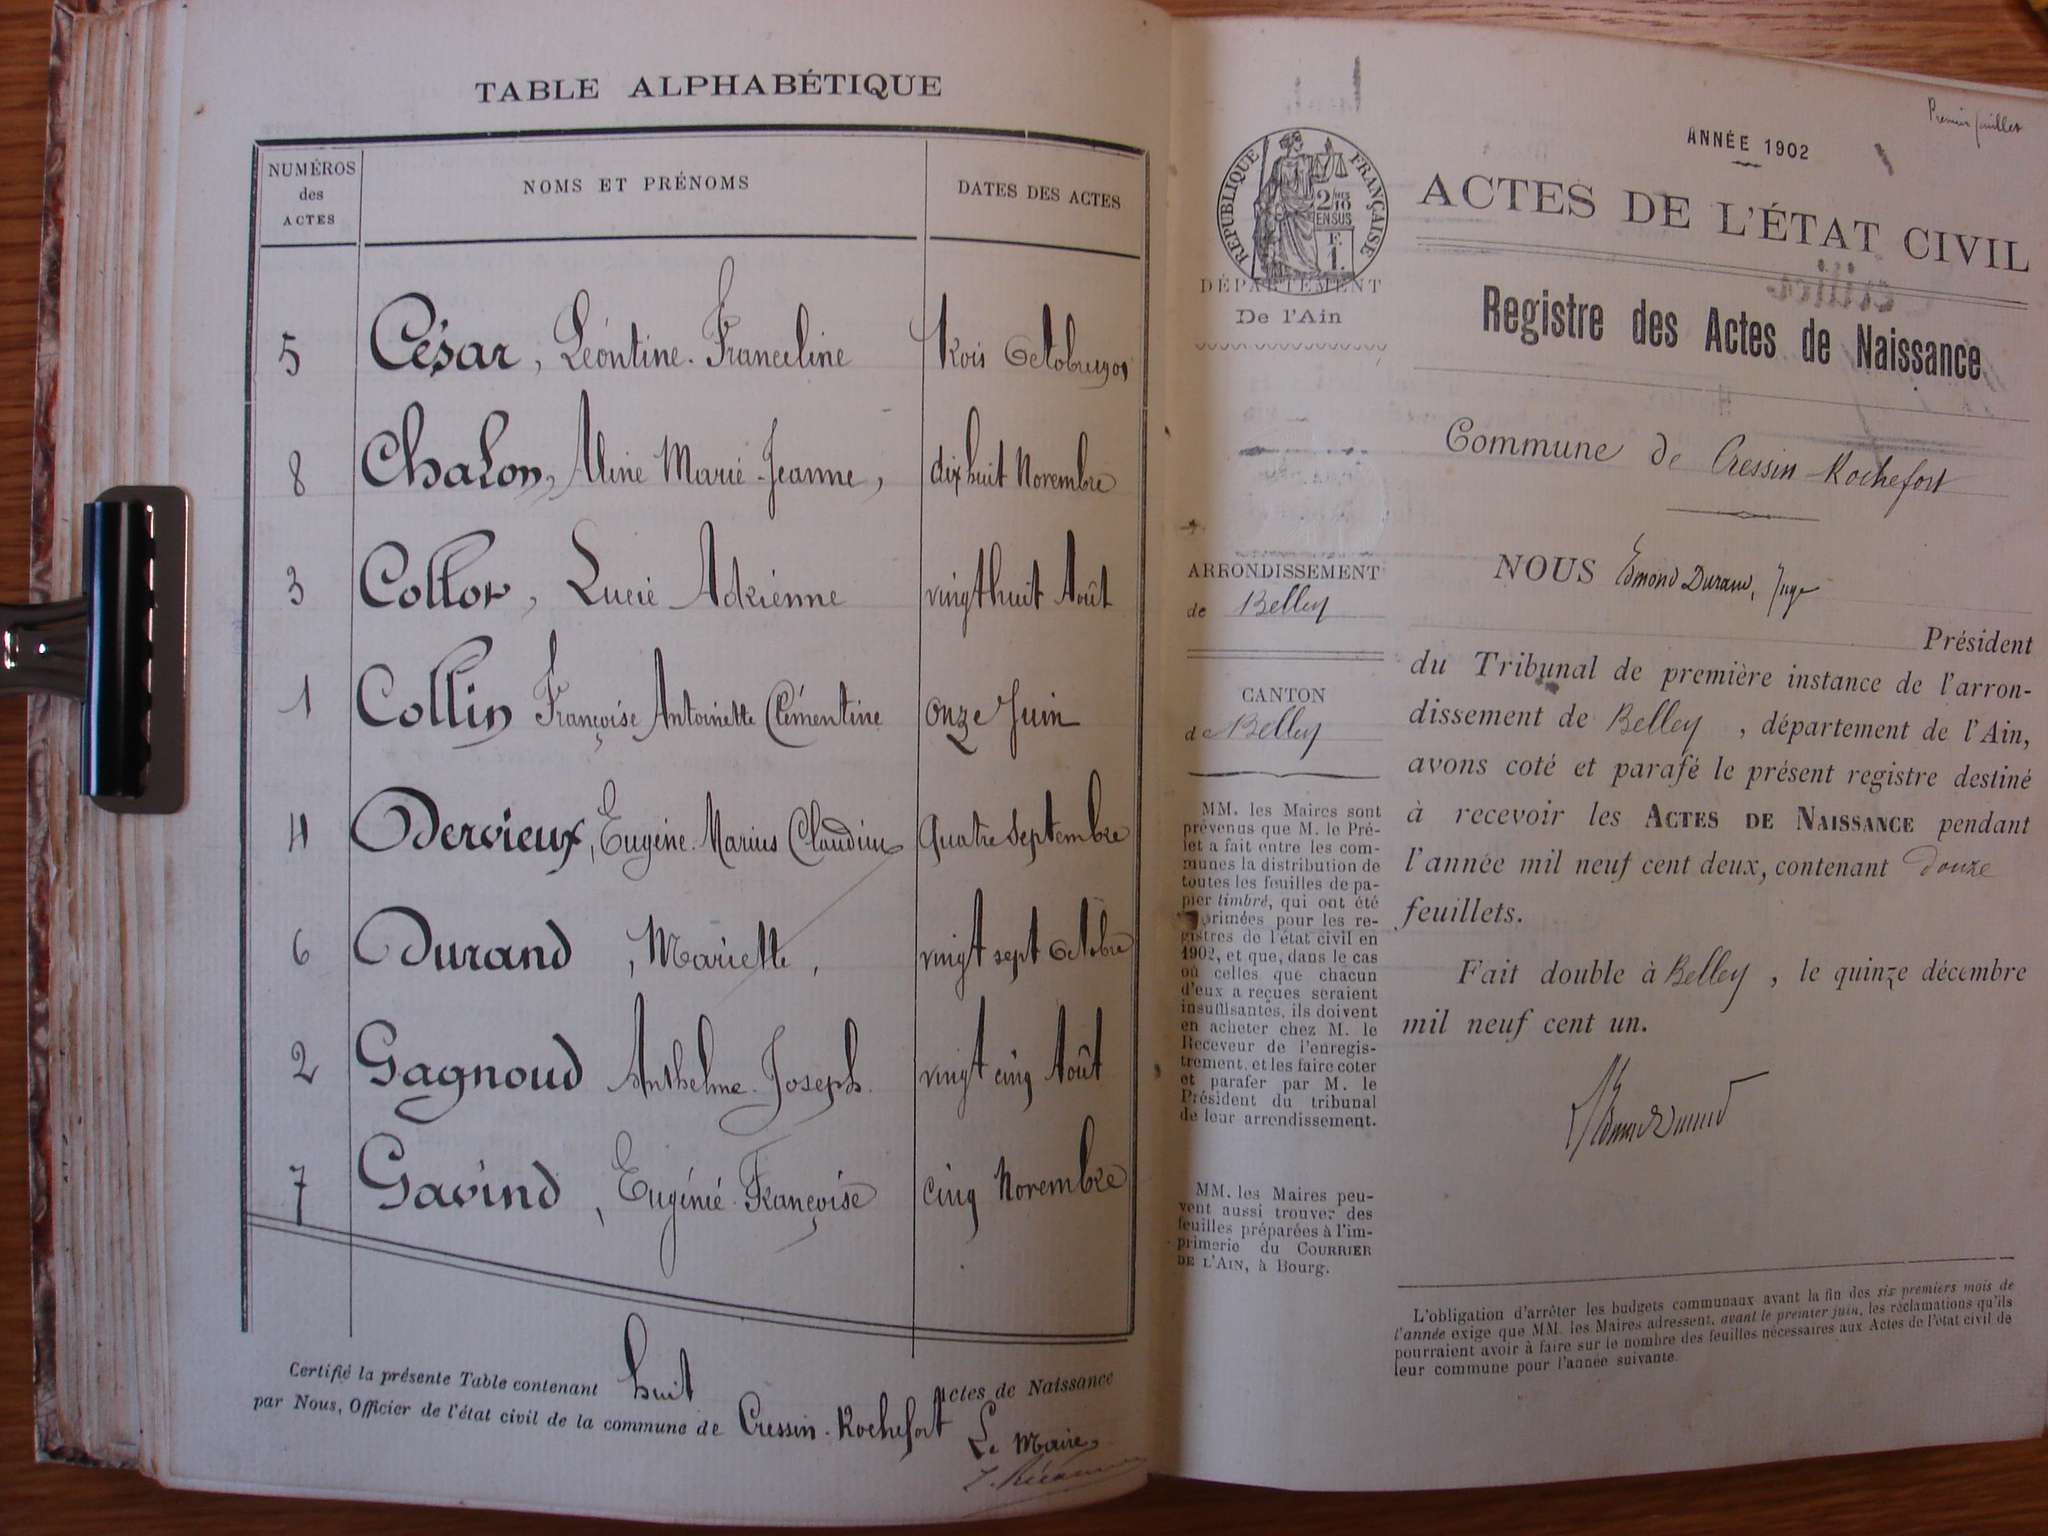 TABLE ALPHABÉTIQUE
NUMÉROS
des
ACTES
NOMS ET PRÉNOMS
DATES DES ACTES
5 César, Léontine Franceline trois Octobre 1901
8 Chalon, Aline Marie Jeanne, dix huit Novembre
3 Collor, Lucie Adrienne vingt huit Août
1 Collin Françoise Antoinette Clémentine onze Juin
4 Dervieux, Eugène Marius Claudius quatre Septembre
6 Durand, Mariette, vingt sept Octobre
2 Gagnoud Anthelme Joseph. vingt cinq Août
7 Gavind, Eugénie Françoise cinq Novembre
Certifié la présente Table contenant huit Actes de Naissance
par Nous, Officier de l'état civil de la commune de Cressin-Rochefort
Le Maire,
Premier feuillet
ANNÉE 1902
ACTES DE L'ÉTAT CIVIL
RÉPUBLIQUE FRANÇAISE
2/10
EN SUS
F.
1.
DÉPARTEMENT
De l'Ain
Registre des Actes de Naissance
Commune de Cressin-Rochefort
ARRONDISSEMENT
de Belley
CANTON
de Belley
MM. les Maires sont
prévenus que M. le Pré-
fet a fait entre les com-
munes la distribution de
toutes les feuilles de pa-
pier timbré, qui ont été
imprimées pour les re-
gistres de l'état civil en
1902, et que, dans le cas
où celles que chacun
d'eux a reçues seraient
insuffisantes, ils doivent
en acheter chez M. le
Receveur de l'enregis-
trement, et les faire coter
et parafer par M. le
Président du tribunal
de leur arrondissement.
MM. les Maires peu-
vent aussi trouver des
feuilles préparées à l'im-
primerie du COURRIER
DE L'AIN, à Bourg.
NOUS Edmond Durand, Juge
Président
du Tribunal de première instance de l'arron-
dissement de Belley, département de l'Ain,
avons coté et parafé le présent registre destiné
à recevoir les ACTES DE NAISSANCE pendant
l'année mil neuf cent deux, contenant douze
feuillets.
Fait double à Belley, le quinze décembre
mil neuf cent un.
L'obligation d'arrêter les budgets communaux avant la fin des six premiers mois de
l'année exige que MM. les Maires adressent, avant le premier juin, les réclamations qu'ils
pourraient avoir à faire sur le nombre des feuilles nécessaires aux Actes de l'état civil de
leur commune pour l'année suivante.